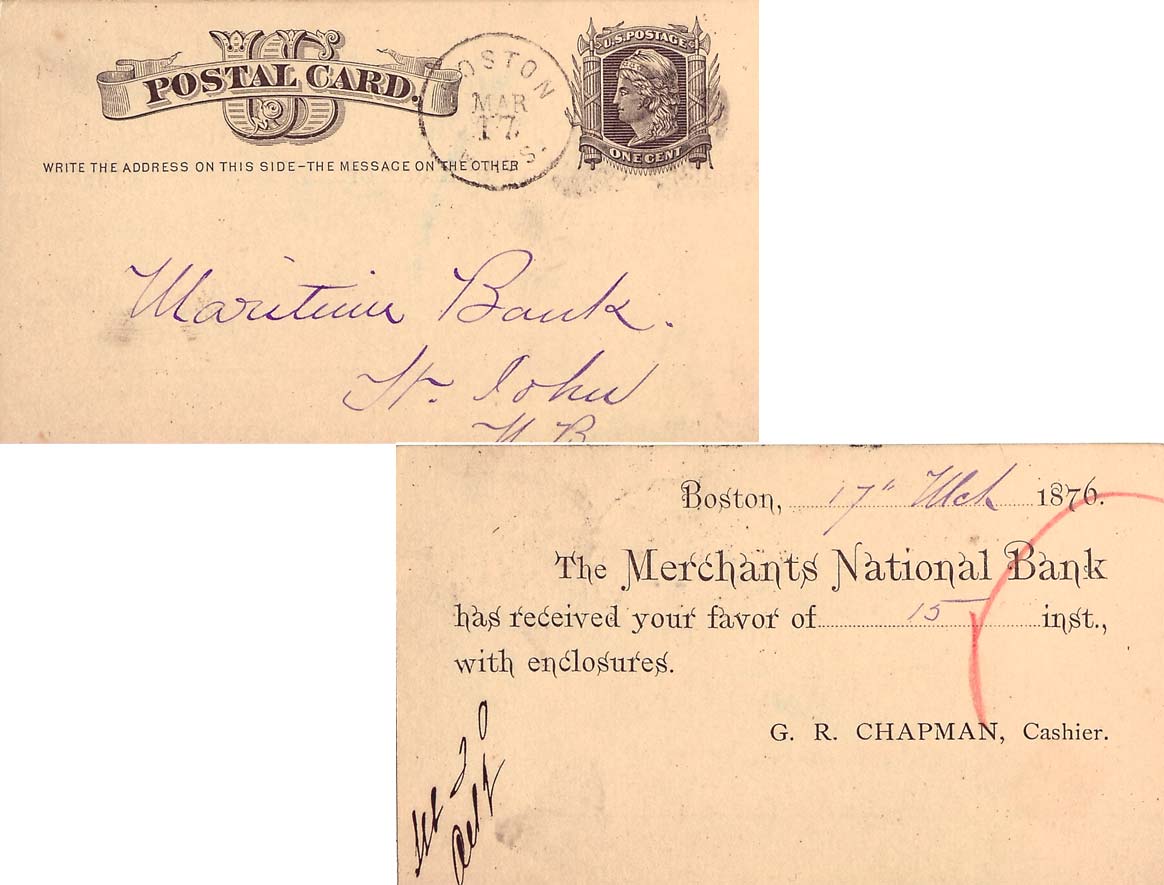 US
POSTAL CARD.
BOSTON
MAR
17
MASS.
U.S. POSTAGE
ONE CENT
WRITE THE ADDRESS ON THIS SIDE–THE MESSAGE ON THE OTHER
Maritime Bank.
St. John
N B
Boston, 17" Mch 1876.
The Merchants National Bank
has received your favor of 15 inst.,
with enclosures.
G. R. CHAPMAN, Cashier.